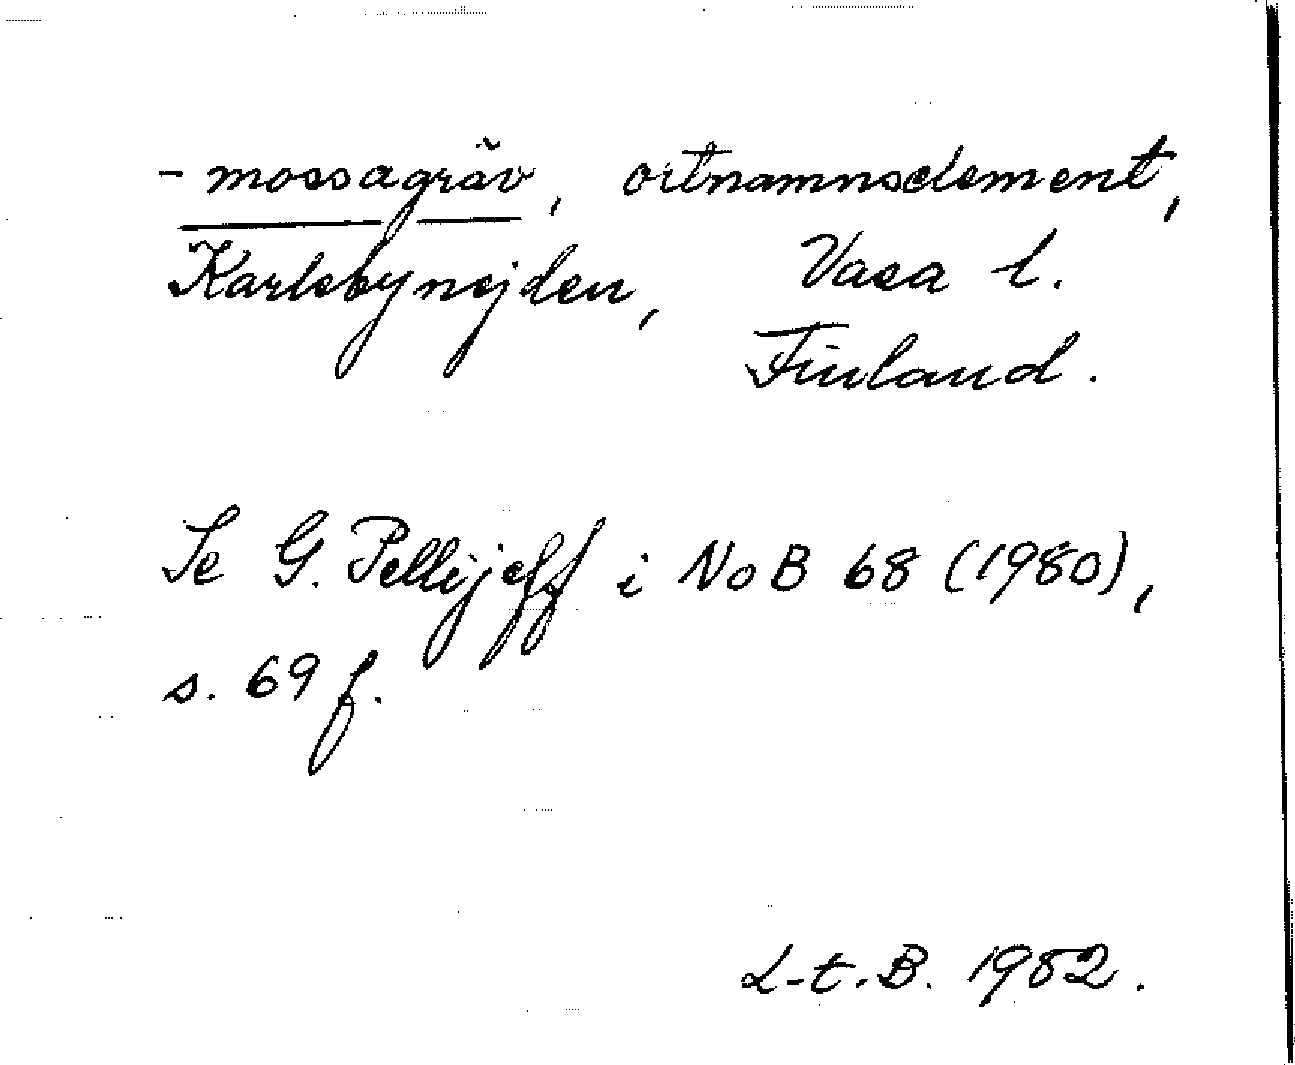 -mossagräv, ortnamnselement,
Karlebynejden, Vasa l.
Finland.
Se G. Pellijeff i NoB 68 (1980),
s. 69 f.
L-t. B. 1982.